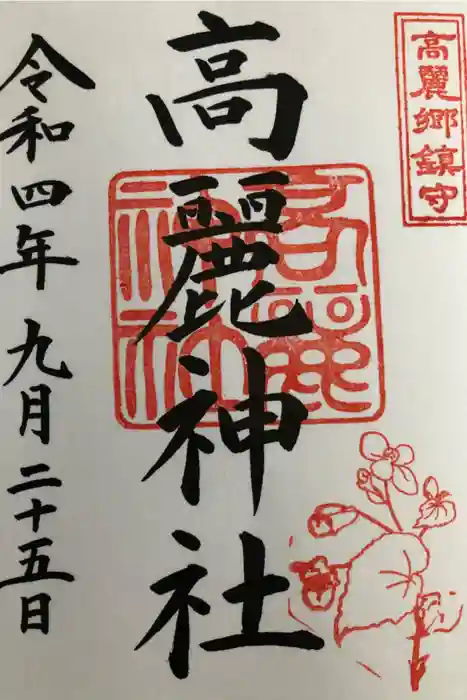 高麗郷鎮守
高麗神社
高麗神社
令和四年 九月 二十五日